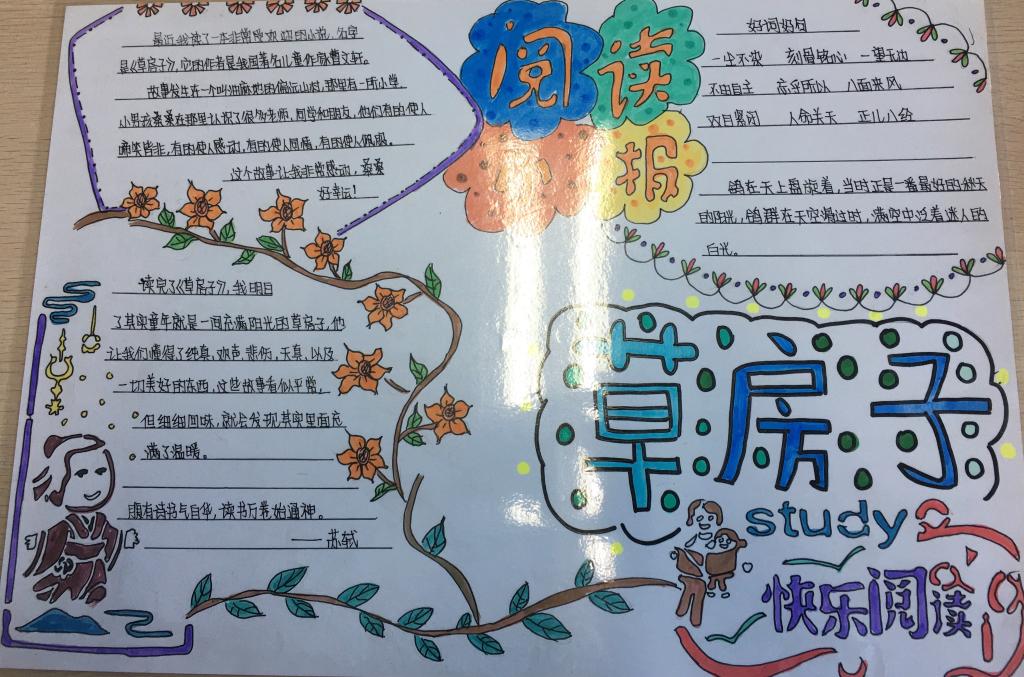 最近我读了一本非常感动的小说,名字
是《草房子》,它的作者是我国著名儿童作家曹文轩。
故事发生在一个叫油麻地的偏远山村,那里有一所小学,
小男孩桑桑在那里认识了很多老师,同学和朋友,他们有的使人
啼笑皆非,有的使人感动,有的使人同情,有的使人佩服。
这个故事让我非常感动,桑桑
好幸运!
阅读
小报
好词好句
一尘不染 刻骨铭心 一望无边
不由自主 忘乎所以 八面来风
双目紧闭 人命关天 正儿八经
鸽在天上盘旋着,当时正是一番最好的秋天
的阳光,鸽群在天空滑过时,满空中泛着迷人的
白光。
读完了《草房子》,我明白
了其实童年就是一间充满阳光的草房子,他
让我们懂得了纯真,欢声,悲伤,天真,以及
一切美好的东西,这些故事看似平常,
但细细回味,就会发现其实里面充
满了温暖。
腹有诗书气自华,读书万卷始通神。
——苏轼
草房子
study
快乐阅读